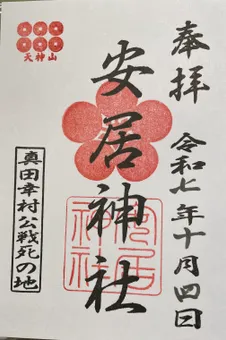 奉拝
令和七年十月四日
安居神社
天神山
真田幸村公戦死の地
安居
神社